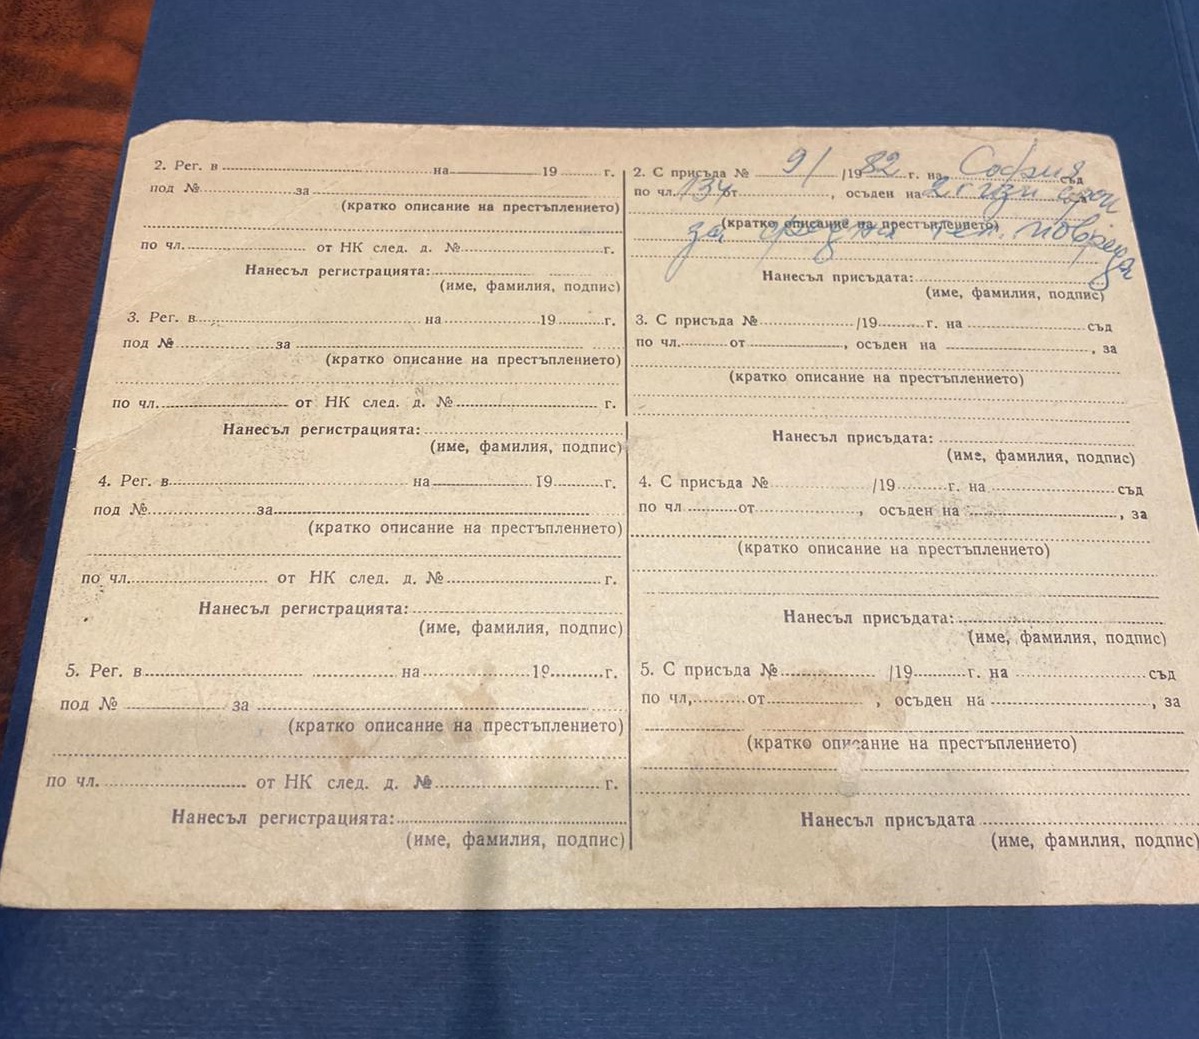 2. Рег. в ........ на ........ 19 ...... г.
под № ........ за ........
(кратко описание на престъплението)
по чл. ........ от НК след. д. № ........ г.
Нанесъл регистрацията: ........
(име, фамилия, подпис)
3. Рег. в ........ на ........ 19 ...... г.
под № ........ за ........
(кратко описание на престъплението)
по чл. ........ от НК след. д. № ........ г.
Нанесъл регистрацията: ........
(име, фамилия, подпис)
4. Рег. в ........ на ........ 19 ...... г.
под № ........ за ........
(кратко описание на престъплението)
по чл. ........ от НК след. д. № ........ г.
Нанесъл регистрацията: ........
(име, фамилия, подпис)
5. Рег. в ........ на ........ 19 ...... г.
под № ........ за ........
(кратко описание на престъплението)
по чл. ........ от НК след. д. № ........ г.
Нанесъл регистрацията: ........
(име, фамилия, подпис)
2. С присъда № 9/ /1982 г. на София съд
по чл. 134 от ........, осъден на 2 г.
(кратко описание на престъплението)
за средна тел. повреда
Нанесъл присъдата: ........
(име, фамилия, подпис)
3. С присъда № ........ /19 ...... г. на ........ съд
по чл. ........ от ........, осъден на ........, за
(кратко описание на престъплението)
Нанесъл присъдата: ........
(име, фамилия, подпис)
4. С присъда № ........ /19 ...... г. на ........ съд
по чл ........ от ........, осъден на ........, за
(кратко описание на престъплението)
Нанесъл присъдата: ........
(име, фамилия, подпис)
5. С присъда № ........ /19 ...... г. на ........ съд
по чл, ........ от ........, осъден на ........, за
(кратко описание на престъплението)
Нанесъл присъдата ........
(име, фамилия, подпис)